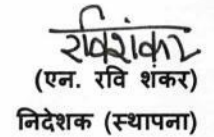 रविशंकर
(एन. रवि शंकर)
निदेशक (स्थापना)